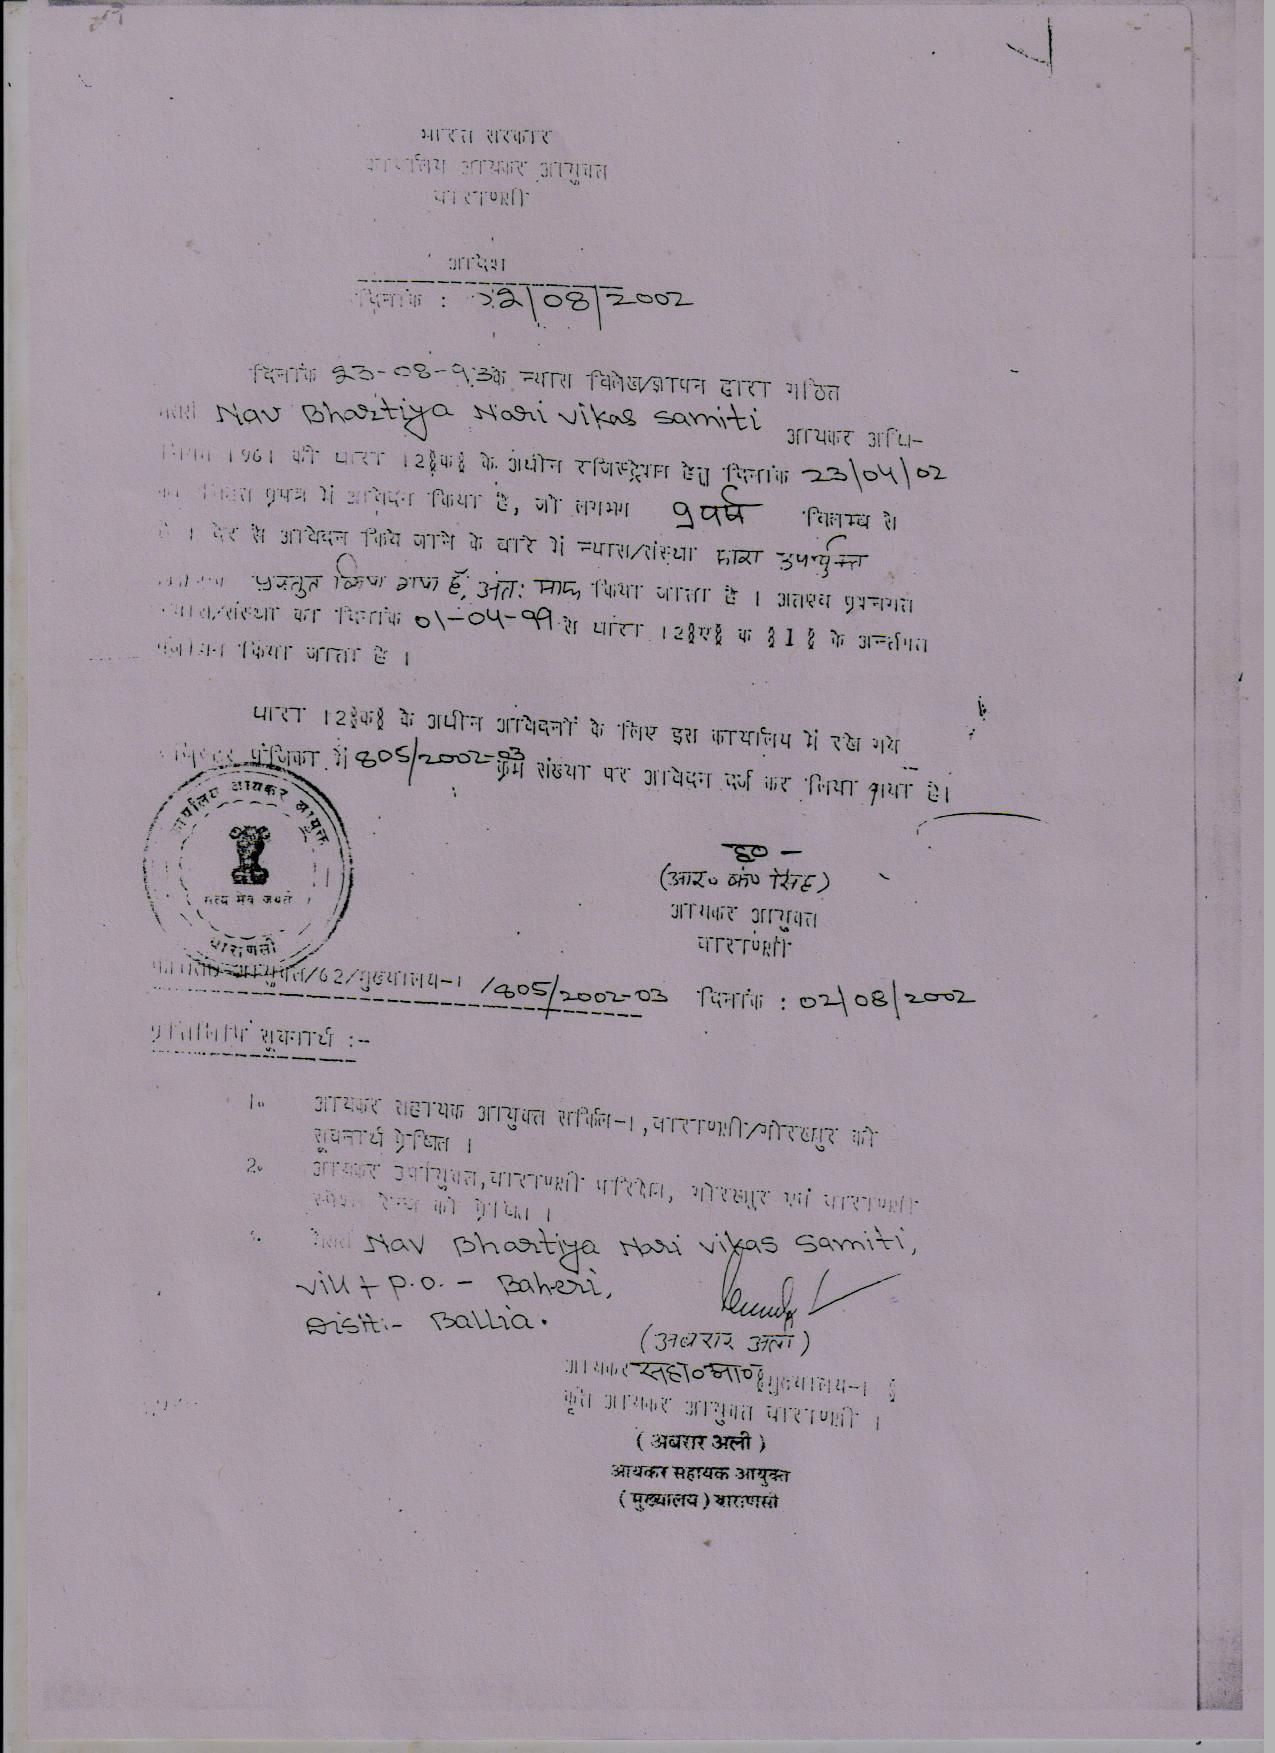 भारत सरकार
कार्यालय आयकर आयुक्त
वाराणसी
आदेश
दिनांक : 02/08/2002
दिनांक 23-08-93 के न्यास विलेख/ज्ञापन द्वारा गठित
Nav Bhartiya Nari Vikas Samiti आयकर अधि-
1961 की धारा 12§क§ के अधीन रजिस्ट्रेशन हेतु दिनांक 23/04/02
प्रपत्र में आवेदन किया है, जो लगभग 9 वर्ष विलम्ब से
है । देर से आवेदन किये जाने के बारे में न्यास/संस्था द्वारा उपर्युक्त
प्रस्तुत किया गया है, अंत: माफ किया जाता है । अतएव प्रश्नगत
न्यास/संस्था का दिनांक 01-04-99 से धारा 12§ए§ क §I§ के अर्न्तगत
किया जाता है ।
धारा 12§क§ के अधीन आवेदनों के लिए इस कार्यालय में रखे गये
पंजिका में 805/2002-03 क्रम संख्या पर आवेदन दर्ज कर लिया गया है।
कार्यालय आयकर आयुक्त
सत्य मेव जयते
वाराणसी
ह० -
(आर० के० सिंह)
आयकर आयुक्त
वाराणसी
आयुक्त/62/मुख्यालय-1 /805/2002-03 दिनांक : 02/08/2002
प्रतिलिपि सूचनार्थ :-
1. आयकर सहायक आयुक्त सर्किल-1, वाराणसी/गोरखपुर को
सूचनार्थ प्रेषित ।
2. आयकर उपायुक्त, वाराणसी परिक्षेत्र, गोरखपुर एवं वाराणसी
रेन्ज को प्रेषित ।
Nav Bhartiya Nari Vikas Samiti,
Vill + P.O. - Baheri,
Distt:- Ballia.
(अबरार अली)
आयकर सहा०आ०§मुख्यालय-1 §
कृते आयकर आयुक्त वाराणसी ।
( अबरार अली )
आयकर सहायक आयुक्त
( मुख्यालय ) वाराणसी